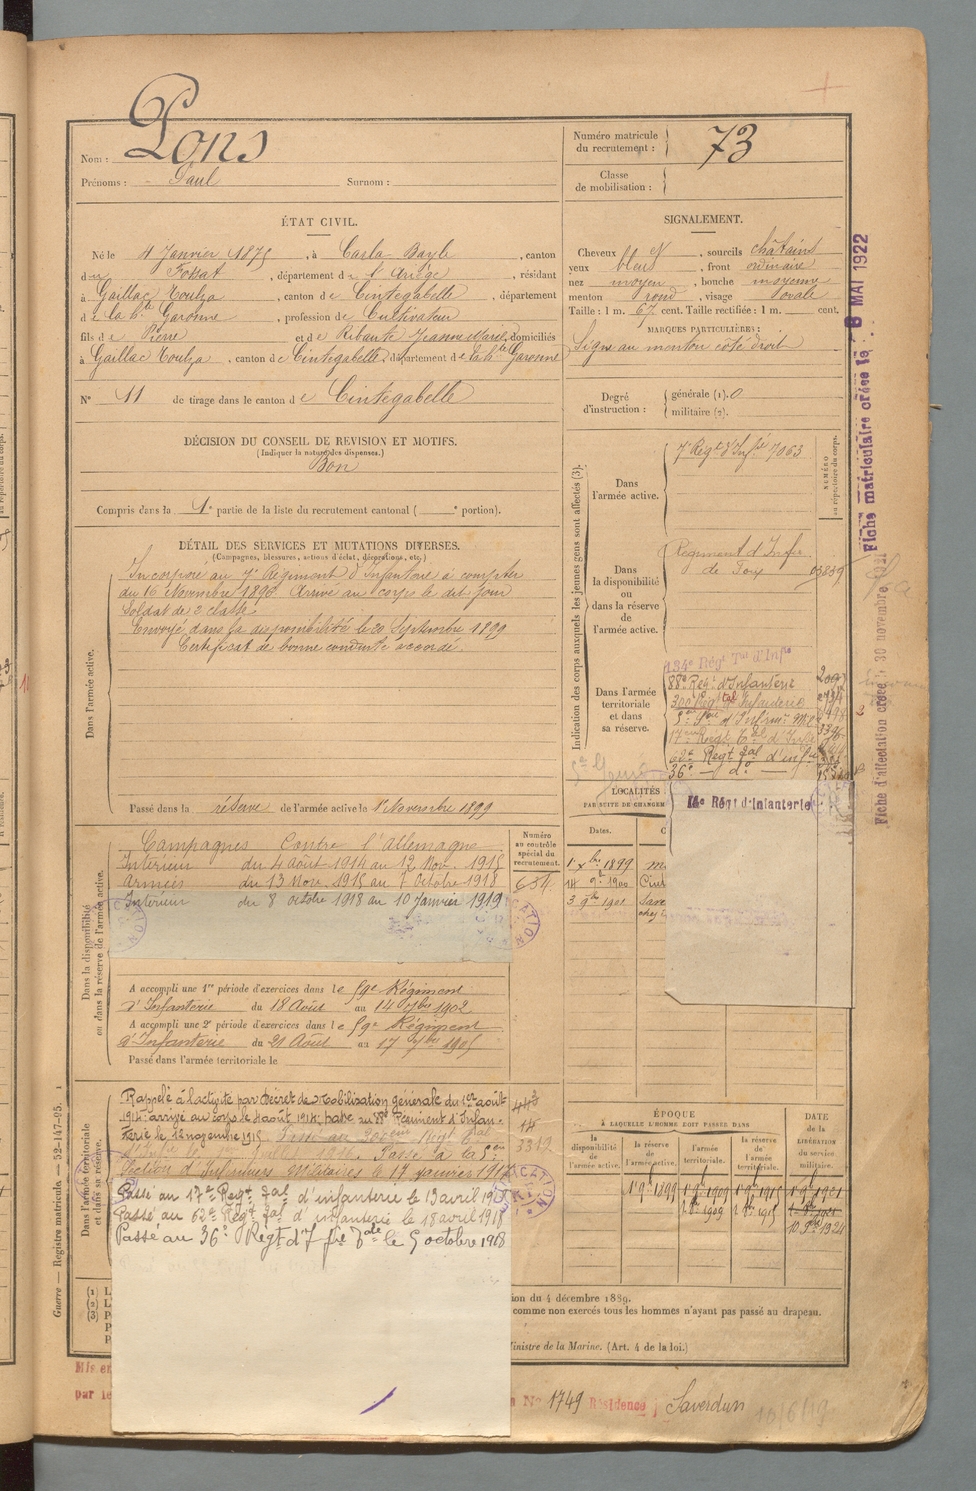 Nom : Pons
Prénoms : Paul Surnom :
Numéro matricule du recrutement : 73
Classe de mobilisation :
ÉTAT CIVIL.
Né le 4 Janvier 1875, à Carla Bayle, canton
du Fossat, département de l'Ariège, résidant
à Gaillac Toulza, canton de Cintegabelle, département
de la Hte Garonne, profession de Cultivateur
fils de Pierre et de Ribaute Jeanne Marie, domiciliés
à Gaillac Toulza, canton de Cintegabelle, département de la Hte Garonne
N° 11 de tirage dans le canton de Cintegabelle
SIGNALEMENT.
Cheveux N, sourcils châtains
yeux bleus, front ordinaire
nez moyen, bouche moyenne
menton rond, visage ovale
Taille : 1 m. 67 cent. Taille rectifiée : 1 m. cent.
MARQUES PARTICULIÈRES :
Signe au menton côté droit
Degré d'instruction : générale (1). 0
militaire (2).
DÉCISION DU CONSEIL DE REVISION ET MOTIFS.
(Indiquer la nature des dispenses.)
Bon
Compris dans la 1e partie de la liste du recrutement cantonal ( e portion).
DÉTAIL DES SERVICES ET MUTATIONS DIVERSES.
(Campagnes, blessures, actions d'éclat, décorations, etc.)
Dans l'armée active.
Incorporé au 7e Régiment d'Infanterie à compter
du 16 Novembre 1896. Arrivé au corps le dit jour
Soldat de 2e classe
Envoyé dans la disponibilité le 20 Septembre 1899
Certificat de bonne conduite accordé.
Passé dans la réserve de l'armée active le 1er Novembre 1899
Indication des corps auxquels les jeunes gens sont affectés (3).
NUMÉRO au répertoire du corps.
Dans l'armée active.
7e Régt d'Infie 7063
Dans la disponibilité ou dans la réserve de l'armée active.
Régiment d'Infie
de Foix 03839
Dans l'armée territoriale et dans sa réserve.
134e Régt Tal d'Infie
88e Régt d'Infanterie
300e Régt tal d'Infanterie
17eme Régt Tal d'Infie
62e Regt Tal d'infie
36e — do —
14e Régt d'Infanterie
LOCALITÉS
PAR SUITE DE CHANGEM
Dates.
1 xbre 1899
14 9bre 1900
3 9bre 1901
Dans la disponibilité ou dans la réserve de l'armée active.
Numéro au contrôle spécial du recrutement.
654
Campagnes Contre l'allemagne
Intérieur du 4 août 1914 au 12 Nov. 1915
Armées du 13 Nov. 1915 au 7 Octobre 1918
Intérieur du 8 octobre 1918 au 10 Janvier 1919
A accompli une 1re période d'exercices dans le 59e Régiment
d'Infanterie du 18 Août au 14 7bre 1902
A accompli une 2e période d'exercices dans le 59e Régiment
d'Infanterie du 21 Août au 17 7bre 1905
Passé dans l'armée territoriale le
Dans l'armée territoriale et dans sa réserve.
Rappelé à l'activité par Décret de Mobilisation générale du 1er août
1914 arrivé au corps le 4 août 1914. passé au 88e Régiment d'Infan-
terie le 12 novembre 1915. Passé au 300eme Regt Tal
Passé à la 5eme
Section d'Infirmiers Militaires le 17 janvier 1917
Passé au 17e Regt Tal d'infanterie le 13 avril 1918
Passé au 62e Regt Tal d'infanterie le 18 avril 1918
Passé au 36e Regt d'Ifie Tale le 5 octobre 1918
443
14
3312
ÉPOQUE
À LAQUELLE L'HOMME DOIT PASSER DANS
la disponibilité de l'armée active.
la réserve de l'armée active.
l'armée territoriale.
la réserve de l'armée territoriale.
DATE de la LIBÉRATION du service militaire.
1er 9bre 1899 1er 9bre 1909 1er 9bre 1915 1er 9bre 1921
10 9bre 1924
ion du 4 décembre 1889.
comme non exercés tous les hommes n'ayant pas passé au drapeau.
Ministre de la Marine. (Art. 4 de la loi.)
Guerre — Registre matricule. 52-147-95.
Mis en
par le
N° 1749 Résidence : Saverdun
10/6/19
Fiche matriculaire créée le : 8 MAI 1922
Fiche d'affectation créée : 30 novembre 1921